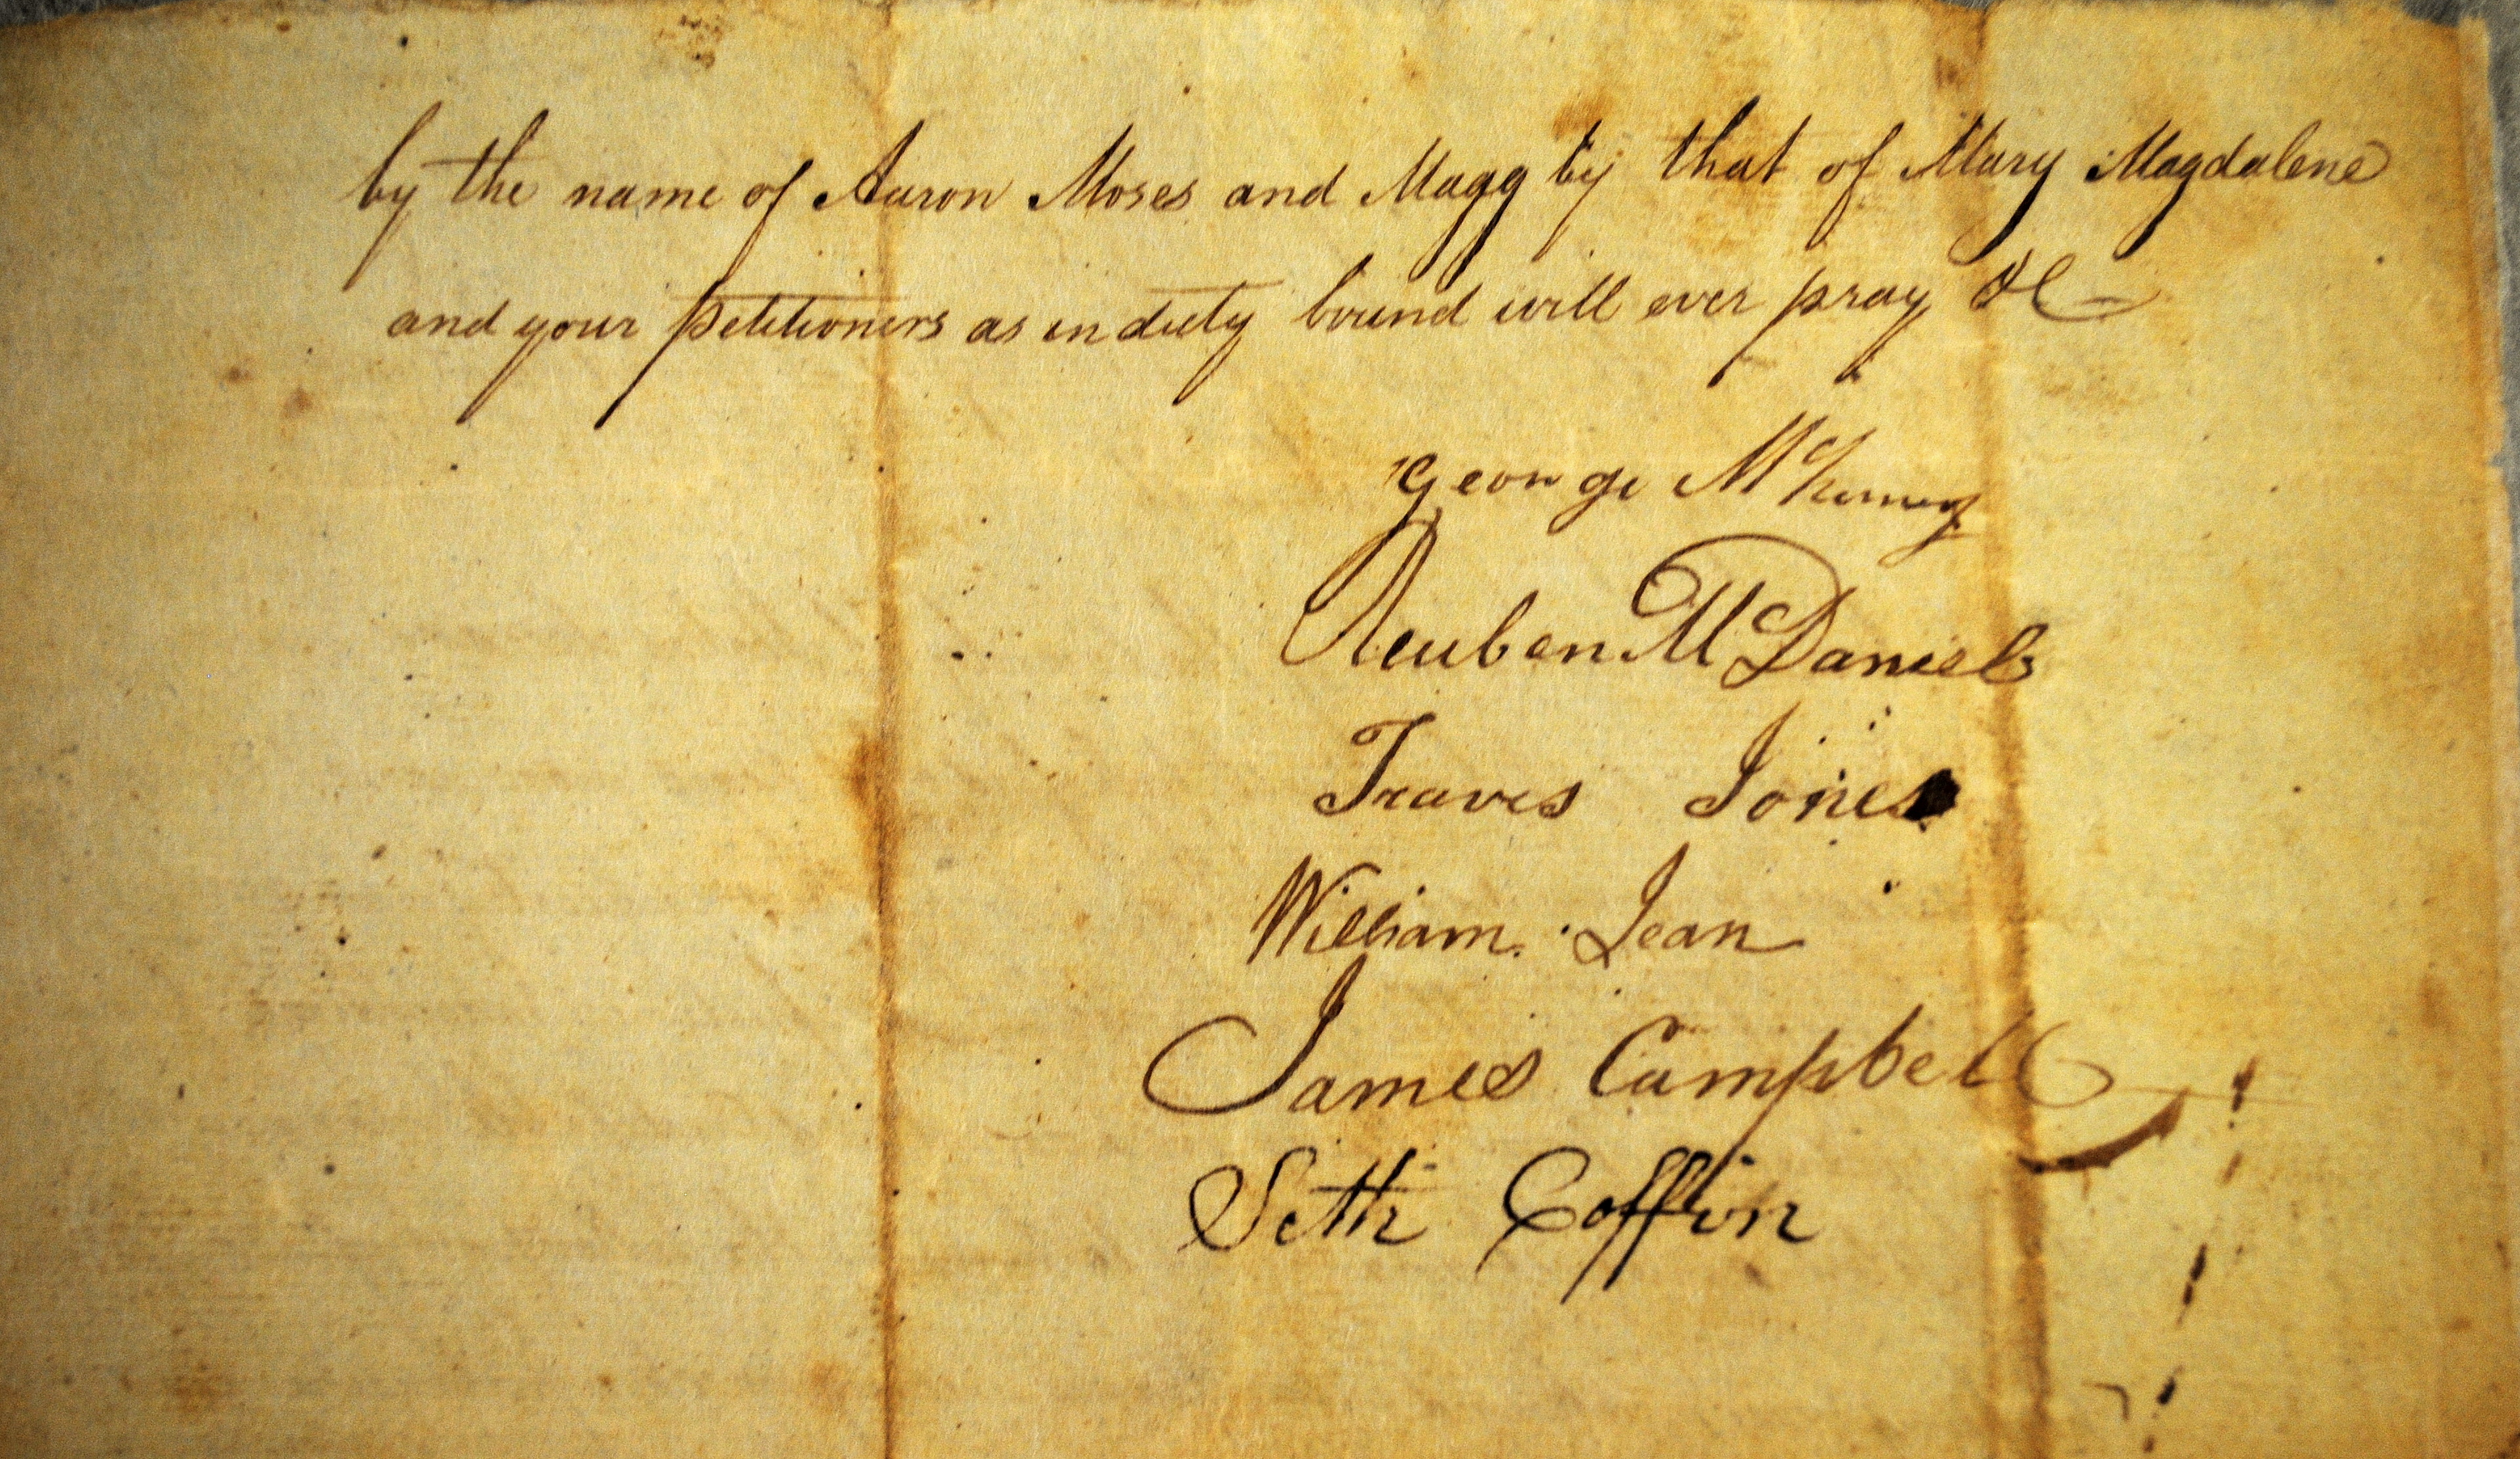 by the name of Aaron Moses and Magg by that of Mary Magdalene
and your petitioners as in duty bound will ever pray &C
George
Reuben McDaniels
Traves Jones
William Jean
James Campbell
Seth Coffin